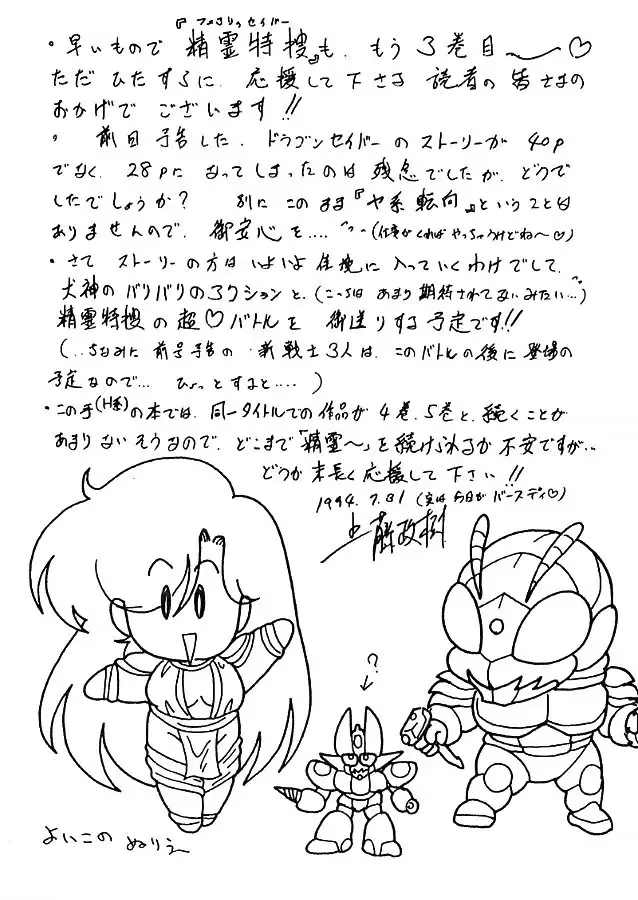 『フェアリィセイバー
・早いもので 精霊特捜』も、もう 3巻目〜♡
ただ ひたすらに、応援して下さる 読者の 皆さまの
おかげで ございます!!
・ 前回 予告した、ドラゴンセイバーの ストーリーが 40p
でなく、28pに なってしまったのは 残念でしたが、どうで
したでしょうか? 別に このまま『ヤ系転向』ということは
ありませんので、御安心を…… (仕事がくれば やっちゃうけどね〜♡)
・さて ストーリーの方は いよいよ 佳境に 入っていくわけでして、
犬神の バリバリの アクションと、(こっちは あまり 期待されてないみたい…)
精霊特捜の 超♡バトルを 御送りする予定です!!
(…ちなみに 前号予告の・新戦士3人は、このバトルの後に 登場の
予定なので… ひょっとすると…… )
・この手(H系)の本では、同一タイトルでの作品が 4巻、5巻と、続くことが
あまり ないそうなので、どこまで「精霊〜」を続けられるか 不安ですが…
どうか 末長く 応援して 下さい!!
1994.7.31 (実は 今日が バースデイ♡)
政樹
?
よいこの ぬりえ